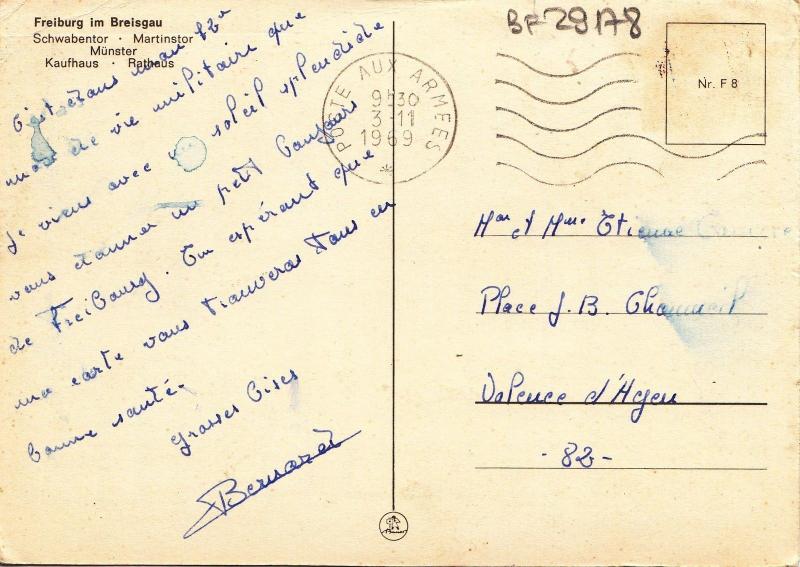 Freiburg im Breisgau
Schwabentor · Martinstor
Münster
Kaufhaus · Rathaus
C'est dans mon 12e
mois de vie militaire que
je viens avec soleil splendide
vous donner un petit bonjour
de Freibourg. En espérant que
ma carte vous trouveras tous en
bonne santé.
grosses bises
Bernard
BF 29178
POSTE AUX ARMEES
9H30
3-11
1969
*
Nr. F 8
Mon et Mme Etienne
Place J.B. Chaumeil
Valence d'Agen
- 82 -